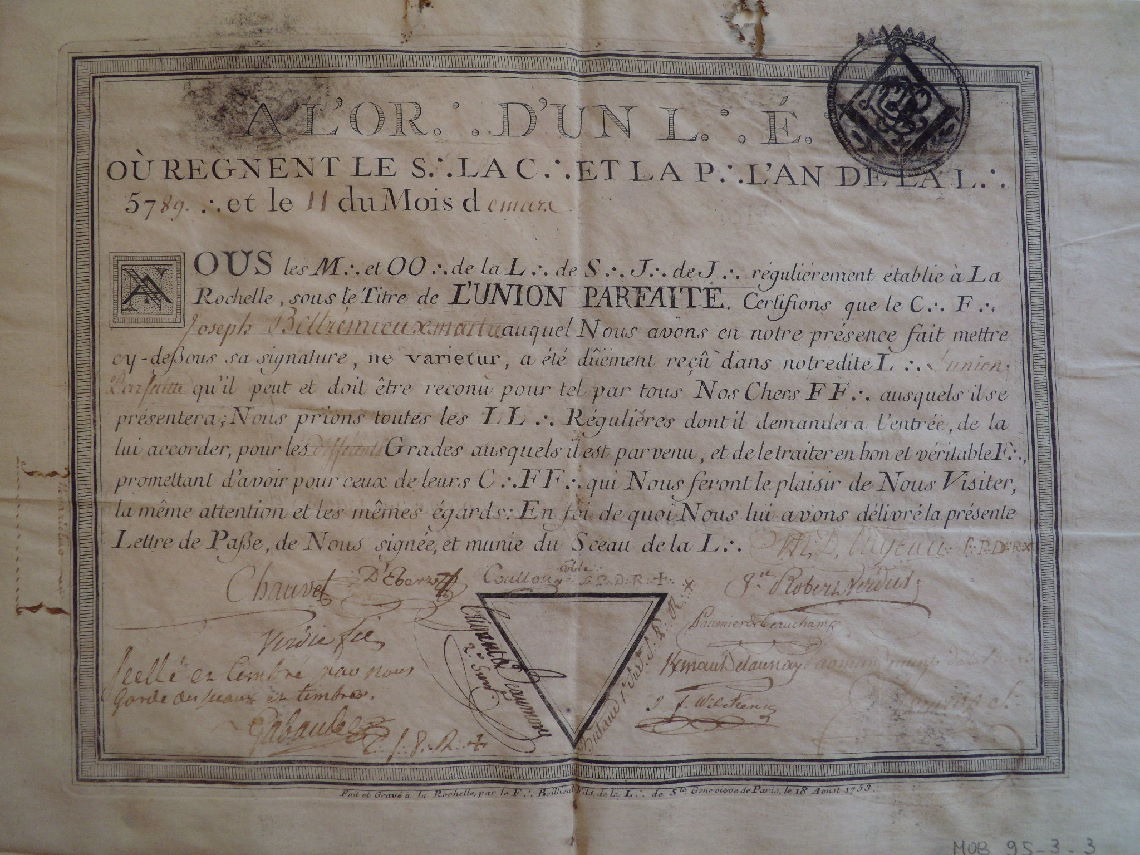 A L'OR.∴.D'UN L.∴.É.
OÙ REGNENT LE S.∴.LA C.∴.ET LA P.∴.L'AN DE LA L.∴.
5789.∴.et le 11 du Mois de mars
NOUS les M.∴.et OO.∴.de la L.∴.de S.∴.J.∴.de J.∴.régulièrement établie à La
Rochelle, sous le Titre de L'UNION PARFAITE, Certifions que le C.∴.F.∴.
Joseph auquel Nous avons en notre présence fait mettre
cy-deßous sa signature, ne varietur, a été dûëment reçû dans notredite L.∴. L'union
Parfaitte qu'il peut et doit être reconu pour tel par tous Nos Chers FF.∴. ausquels il se
présentera; Nous prions toutes les LL.∴. Régulières dont il demandera l'entrée, de la
lui accorder, pour les différents Grades ausquels il est parvenu, et de le traiter en bon et véritable F.∴.,
promettant d'avoir pour ceux de leurs C.∴.FF.∴.qui Nous feront le plaisir de Nous Visiter,
la même attention et les mêmes égards: En foi de quoi Nous lui avons délivré la présente
Lettre de Paße, de Nous signée, et munie du Sceau de la L.∴.
Chauvet
Robert
garde des sceaux et timbres.
Fait et Gravé à la Rochelle, par le F.∴. Fils, de la L.∴. de Ste Genevieve de Paris, le 18 Aoust
MOB 95-3-3